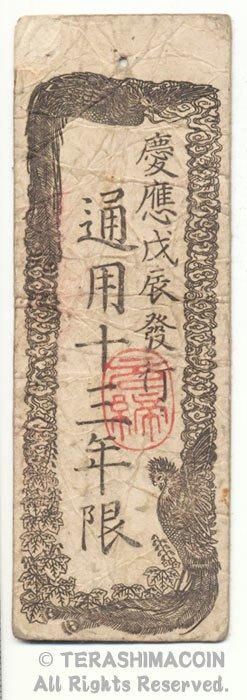 慶應戊辰發行
通用十三年限
© TERASHIMACOIN
All Rights Reserved.